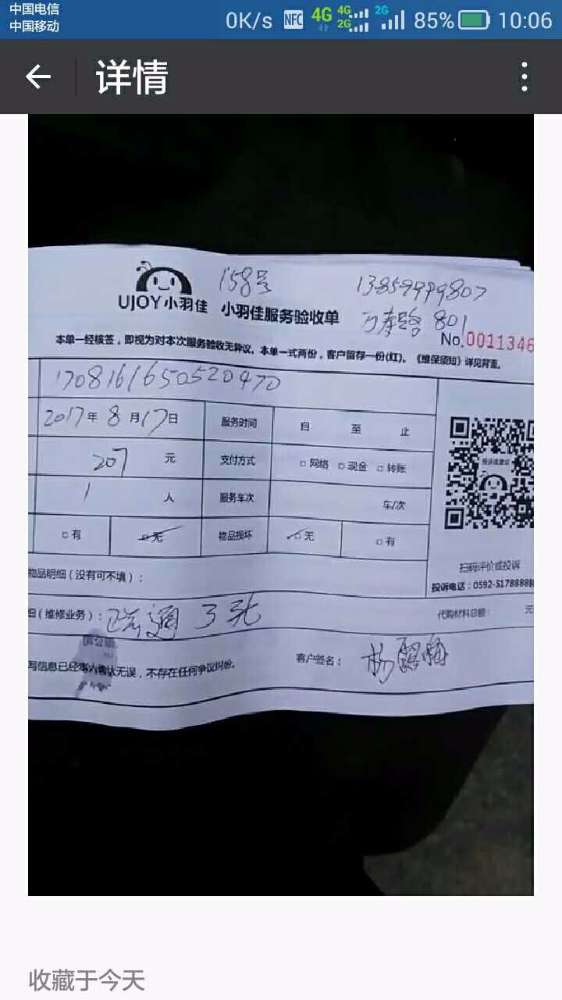 中国电信
中国移动
0K/s NFC 4G 4G 2G 2G 85% 10:06
详情
158号 13859999807
UJOY小羽佳 小羽佳服务验收单 801
No.0011346
本单一经核签，即视为对本次服务验收无异议。本单一式两份，客户留存一份(红)。《维保须知》详见背面。
1708161650520470
2017年8月17日 服务时间 自 至 止
207 元 支付方式 □网络 □现金 □转账
1 人 服务车次 车/次
□有 □无 物品损坏 □无 □有
扫码评价或投诉
物品明细（没有可不填）：
投诉电话：0592-5178888
（维修业务）：疏通 3张 代购材料总额： 元
写信息已经本人确认无误，不存在任何争议纠纷。 客户签名：
收藏于今天